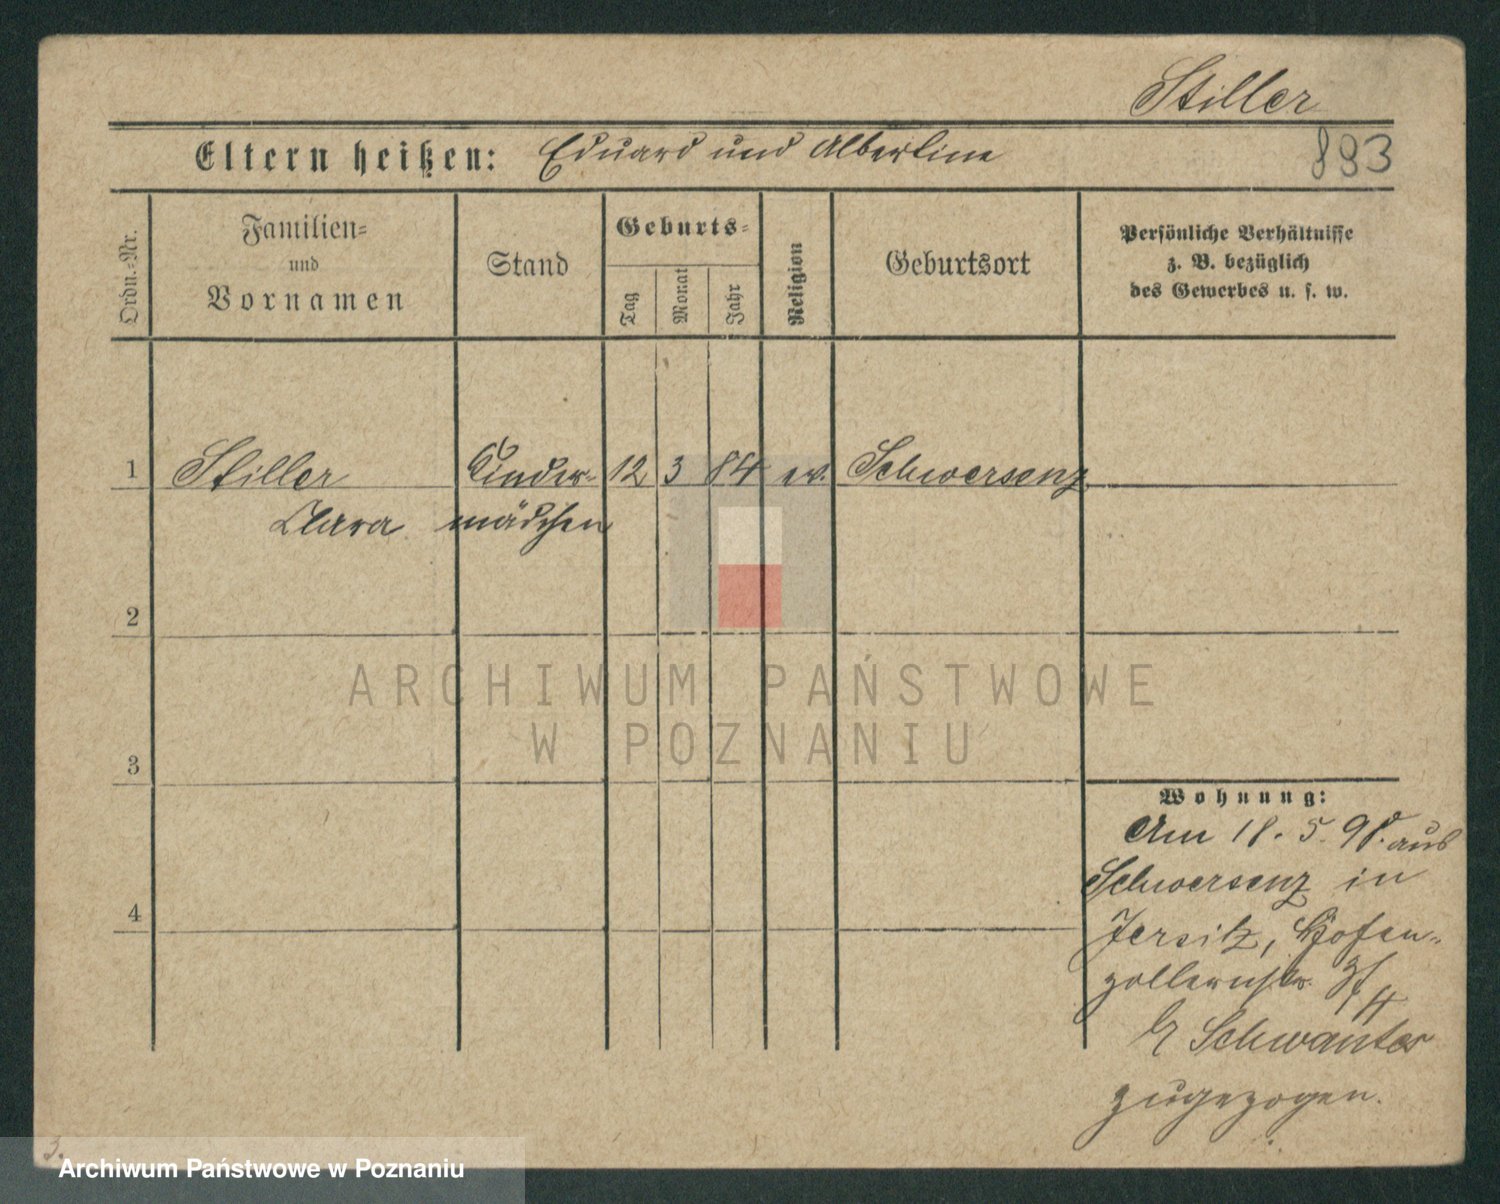 Stiller
Eltern heißen: Eduard und Albertine
883
Ordn.-Nr.
Familien-
und
Vornamen
Stand
Geburts-
Tag
Monat
Jahr
Religion
Geburtsort
Persönliche Verhältnisse
z. B. bezüglich
des Gewerbes u. s. w.
1 Stiller Kinder- 12 3 84 ev. Schwersenz
Clara mädchen
2
3
4
Wohnung:
Am 18. 5. 98. aus
Schwersenz in
Jersitz, Hohen-
zollernstr.
b/ Schwanter
zugezogen.
3.
ARCHIWUM PAŃSTWOWE
W POZNANIU
Archiwum Państwowe w Poznaniu